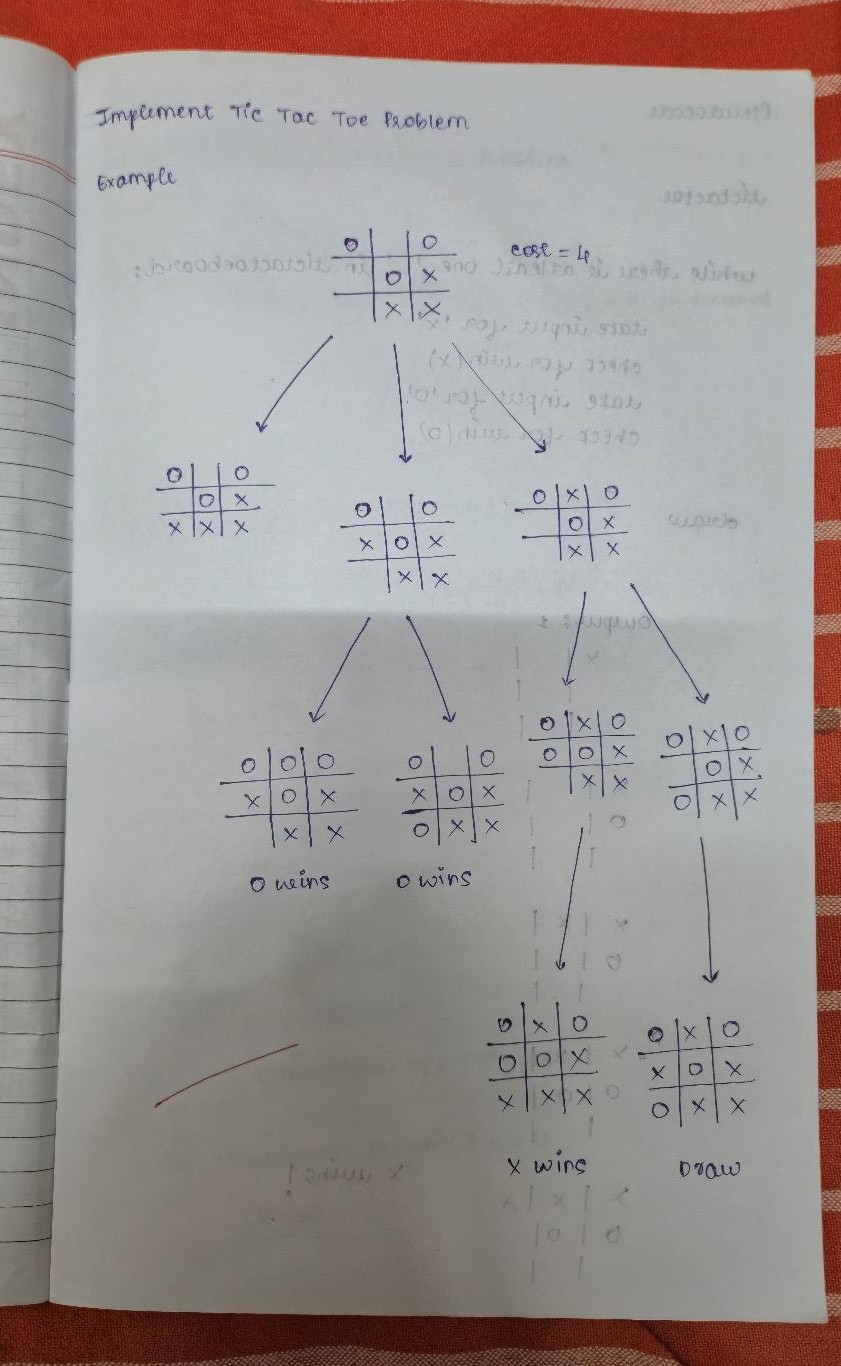 Implement Tic Tac Toe Problem
Example
O | | O
| O | X
| X | X
cost = 4
O | | O
| O | X
X | X | X
O | | O
X | O | X
| X | X
O | X | O
| O | X
| X | X
O | O | O
X | O | X
| X | X
O wins
O | | O
X | O | X
O | X | X
O wins
O | X | O
O | O | X
| X | X
O | X | O
| O | X
O | X | X
O | X | O
O | O | X
X | X | X
X wins
O | X | O
X | O | X
O | X | X
Draw